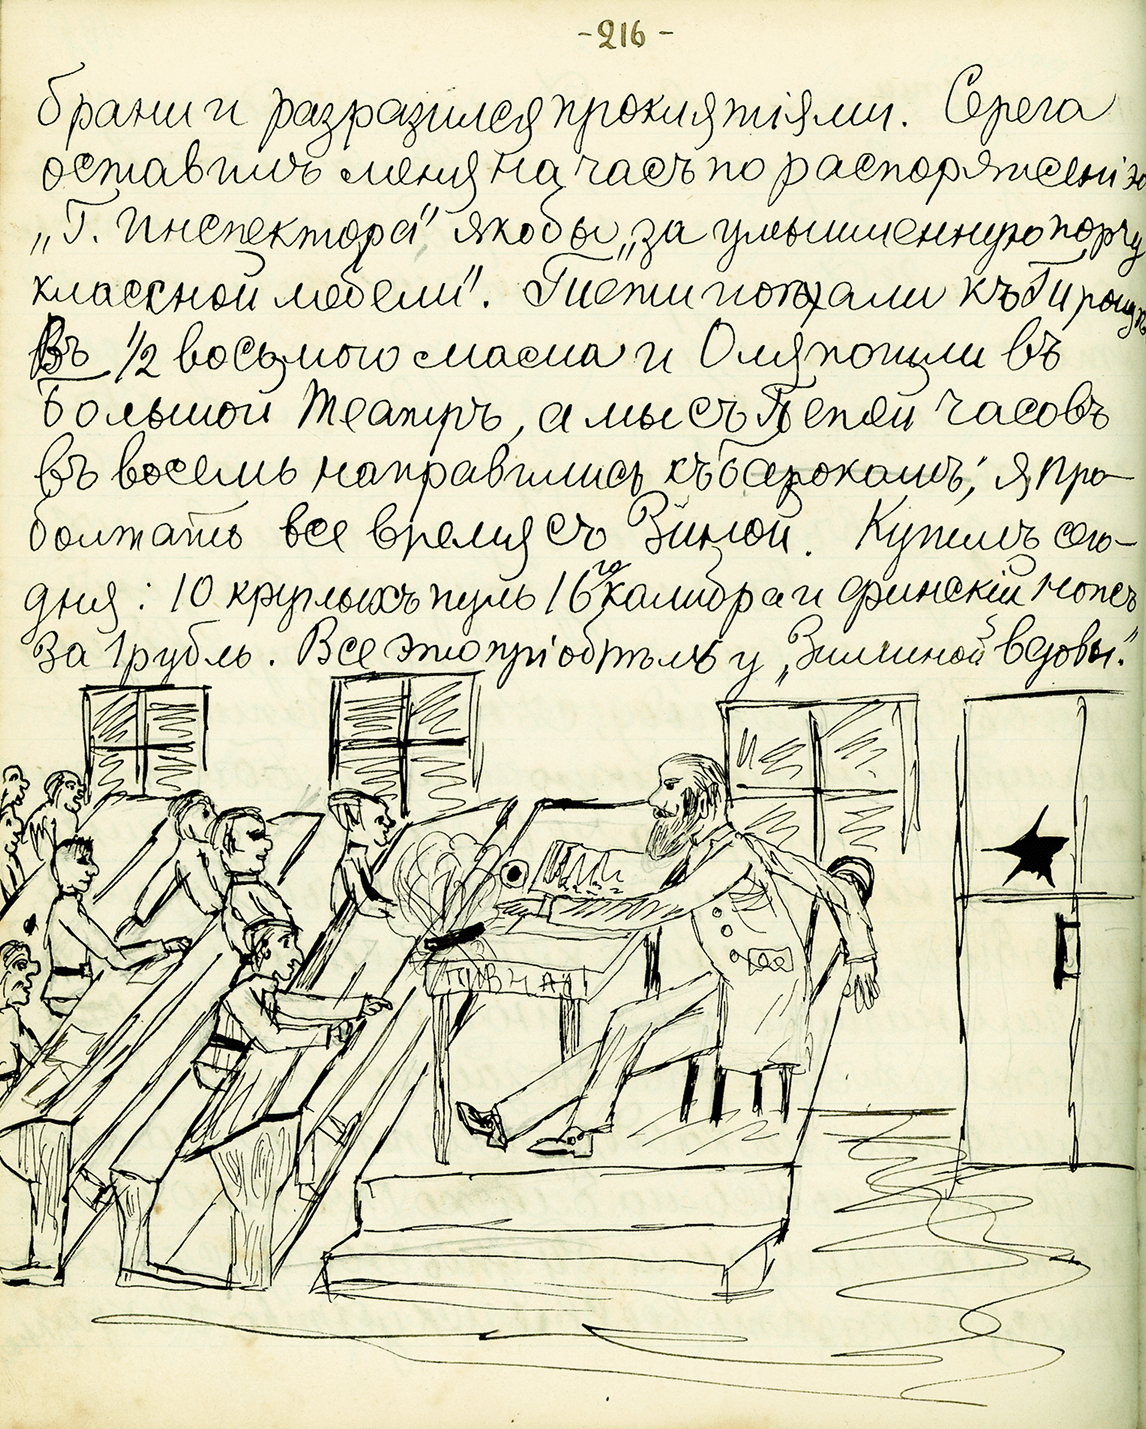 -216-
брани и разразился проклятіями. Серега
оставилъ меня на часъ по распоряженію
„Г. Инспектора" якобы „за умышленную порчу
классной мебели". Тети поѣхали къ
Въ 1/2 восьмого мама и Оля пошли въ
Большой театръ, а мы съ Петей часовъ
въ восемь направились къ я про-
болталъ все время съ Зиной. Купилъ сего-
дня: 10 круглыхъ пуль 16го калибра и финскій ножъ
за 1 рубль. Все это пріобрѣлъ у „Зимчиной вдовы".